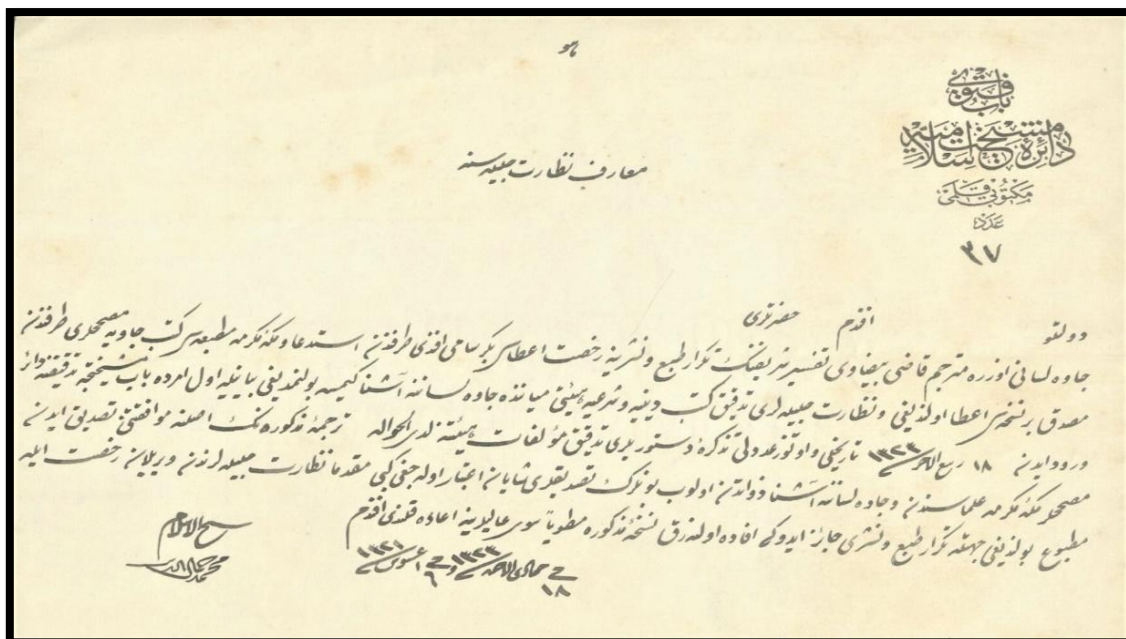 هو
باب فتوى
دائرهٔ مشيخت اسلاميه
مكتوبى قلمى
عدد
٣٧
معارف نظارت جليله سنه
دولتلو افندم حضرتلرى
جاوه لسانى اوزره مترجم قاضى بيضاوى تفسير شريفنك تكرار طبع ونشرينه رخصت اعطاسى بكر سامى افندى طرفندن استدعا ومكه مكرمه مطبعه سى كتب جاويه مصححلرى طرفندن
مصدق بر نسخه سى اعطا اولنديغى ونظارت جليله لرى تدقيق كتب دينيه وشرعيه هيئتى مياننده جاوه لساننه آشنا كيمسه بولنمديغى بيانيله اول امرده باب مشيختجه تدقيقنه دائر
ورود ايدن ١٨ ربيع الاخر سنه ١٣٢٣ تاريخلى واوتوز عددلى تذكرهٔ دستوريلرى تدقيق مؤلفات هيئتنه لدى الحواله ترجمهٔ مذكوره نك اصلنه موافقتنى تصديق ايدن
مصححلر مكهٔ مكرمه علماسندن وجاوه لساننه آشنا ذواتدن اولوب بونلرك تصديقلرى شايان اعتبار اوله جغى كبى مقدما نظارت جليله لرندن ويريلان رخصت ايله
مطبوع بولنديغى جهتله تكرار طبع ونشرى جائز ايدوكى افاده اولنه رق نسخهٔ مذكوره مطوياً سوى عاليلرينه اعاده قلندى افندم
فى ١٨ جمادى الاخر سنه ١٣٢٣ وفى ٦ اغستوس سنه ١٣٢١
شيخ الاسلام
محمد جمال الدين